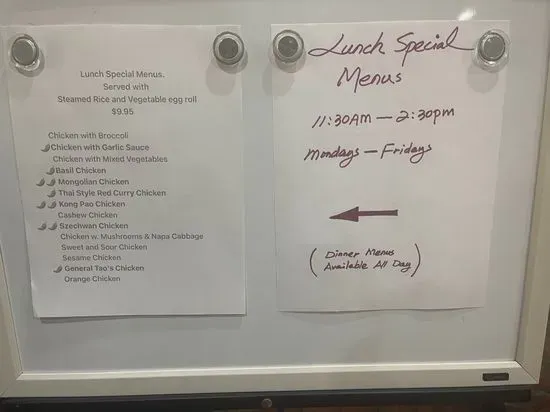 Lunch Special Menus.
Served with
Steamed Rice and Vegetable egg roll
$9.95
Chicken with Broccoli
Chicken with Garlic Sauce
Chicken with Mixed Vegetables
Basil Chicken
Mongolian Chicken
Thai Style Red Curry Chicken
Kong Pao Chicken
Cashew Chicken
Szechwan Chicken
Chicken w. Mushrooms & Napa Cabbage
Sweet and Sour Chicken
Sesame Chicken
General Tao's Chicken
Orange Chicken
Lunch Special
Menus
11:30AM — 2:30pm
Mondays — Fridays
(Dinner Menus
Available All Day)